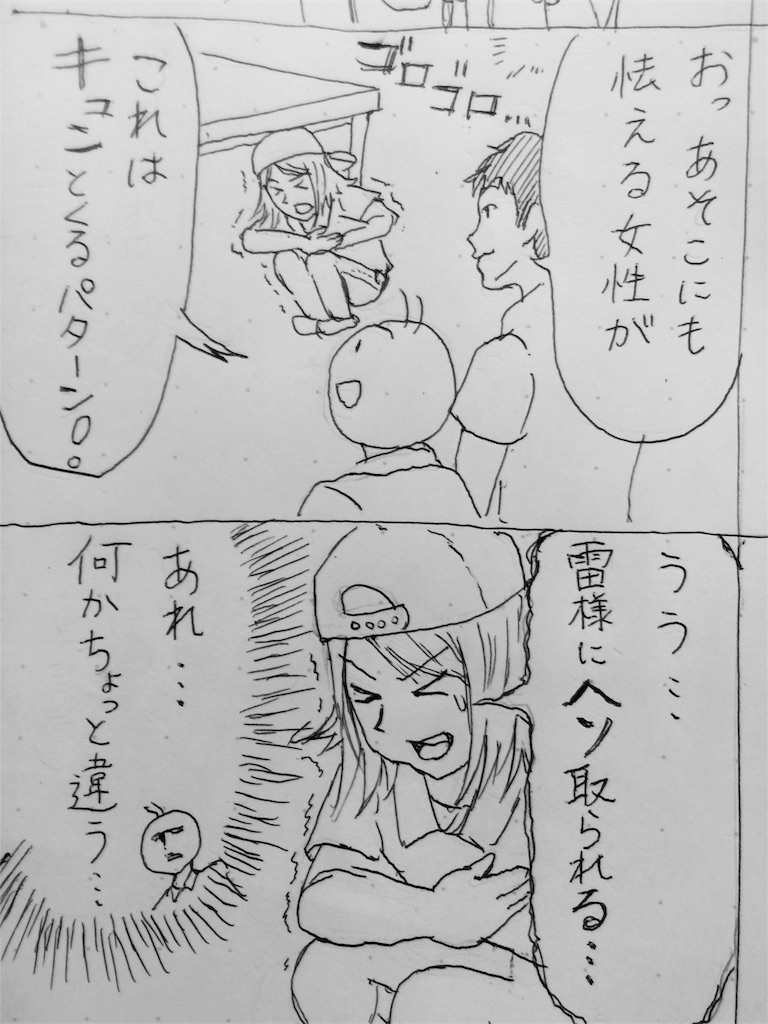 おっ あそこにも
怯える女性が
ゴロゴロ…
これは
キュンとくるパターン!。
うう…
雷様にヘソ取られる…
あれ…
何かちょっと違う…